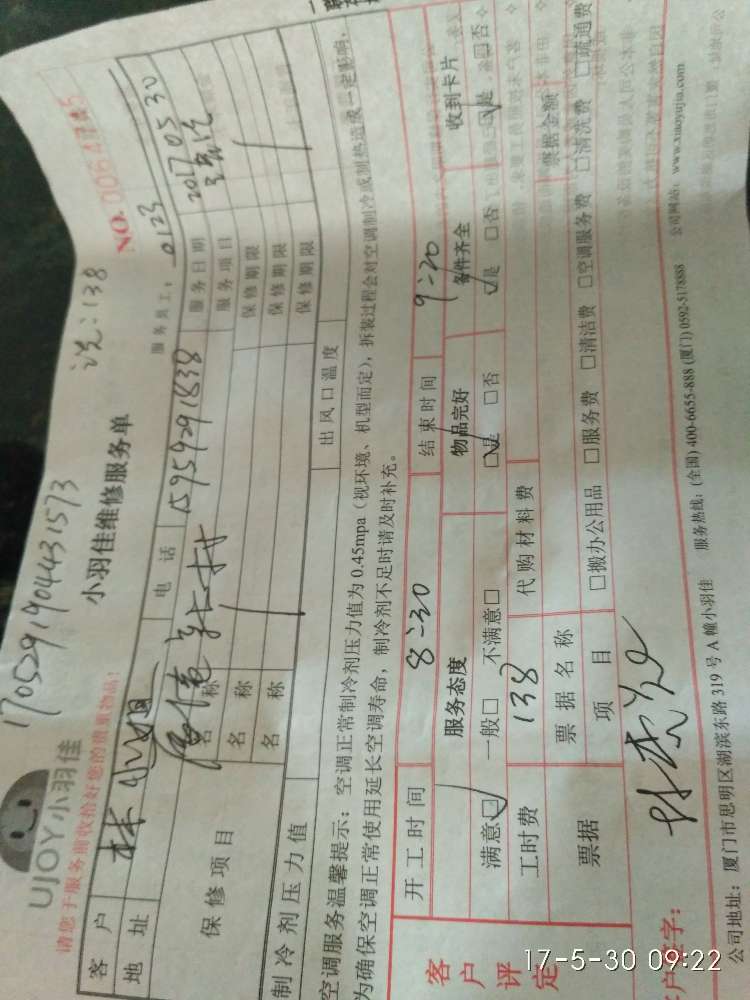 1705291904431573
说:138
UJOY小羽佳
小羽佳维修服务单
NO. 0064745
请您于服务前收拾好您的贵重物品!
服务员工: 0123
客户 林小姐 电话 15959291838 服务日期 2017 05 30
地址 服务项目
保修项目 名称 保修期限
名称 保修期限
名称 保修期限
制冷剂压力值 出风口温度
空调服务温馨提示:空调正常制冷剂压力值为0.45mpa(视环境、机型而定),拆装过程会对空调制冷或制热造成一定影响,
为确保空调正常使用延长空调寿命,制冷剂不足时请及时补充。
客户评定
开工时间 8:30 结束时间 9:20
服务态度 物品完好 备件齐全 收到卡片
满意□ 一般□ 不满意□ □是 □否 □是 □否 □是 □否
工时费 138 代购材料费 票据金额
票据 票据名称
项目 □搬办公用品 □服务费 □清洁费 □空调服务费 □清洗费 □疏通费
户签字:
公司地址:厦门市思明区湖滨东路319号A幢小羽佳 服务热线:(全国) 400-6655-888 (厦门) 0592-5178888 公司网站:www.xiaoyujia.com
17-5-30 09:22